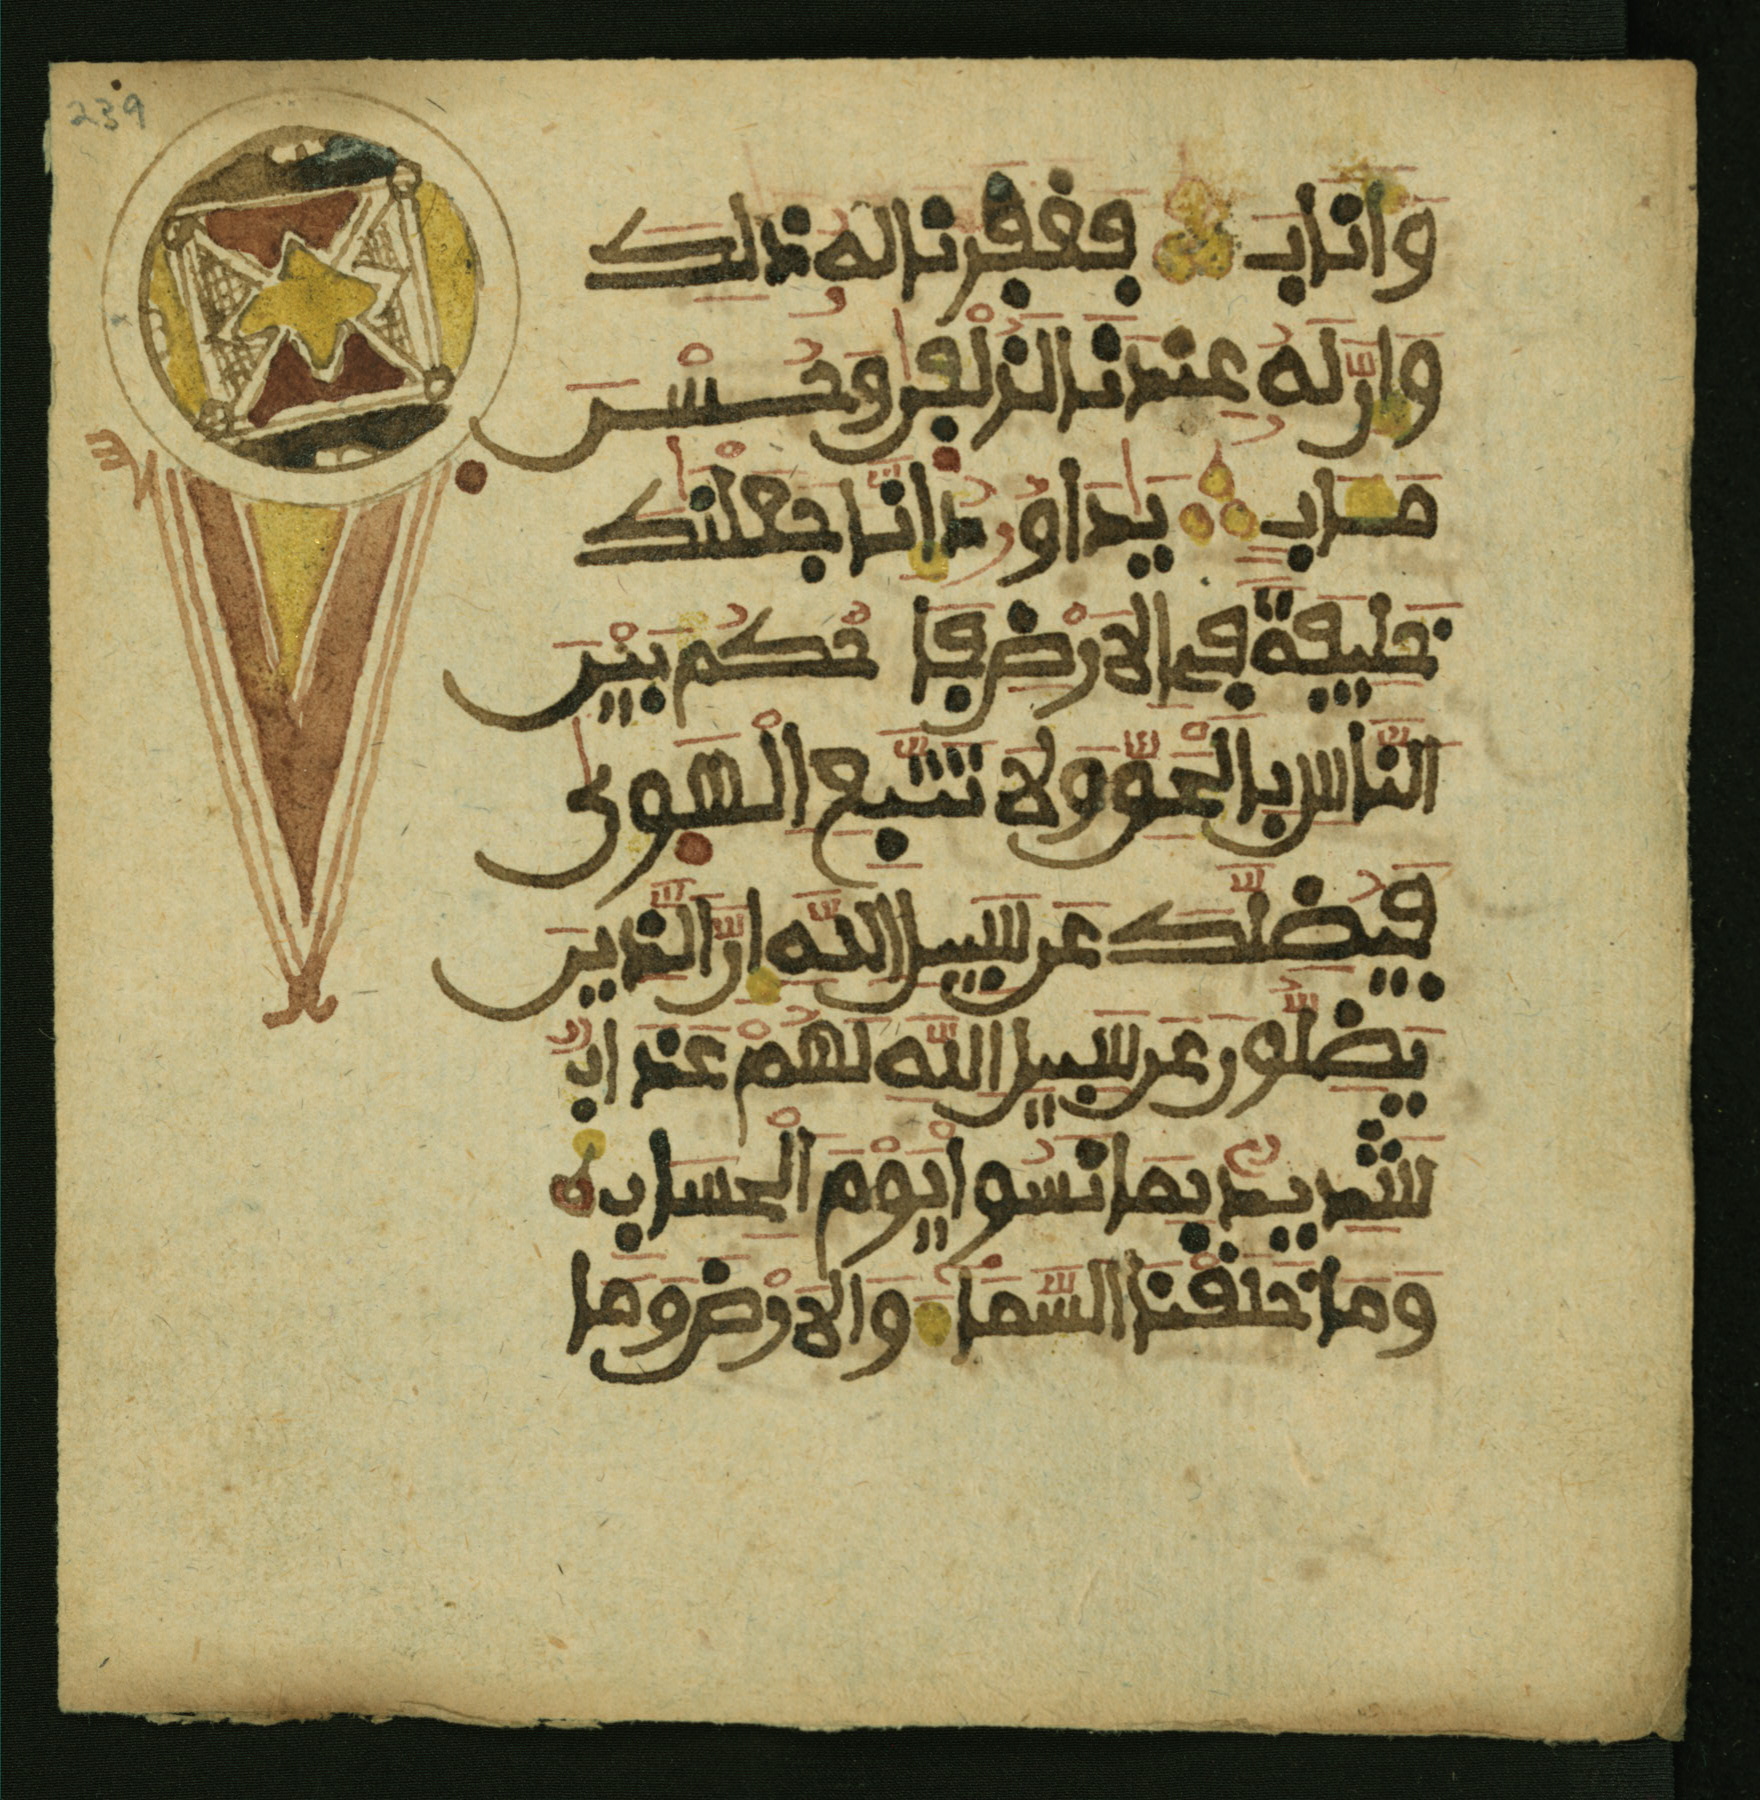 239
وَأَنَابَ فَغَفَرْنَا لَهُ ذَلِكَ
وَإِنَّ لَهُ عِندَنَا لَزُلْفَى وَحُسْنَ
مَـَٔابٍ يَدَاوُدُ إِنَّا جَعَلْنَكَ
خَلِيفَةً فِي الَارْضِ فَاحْكُم بَيْنَ
النَّاسِ بِالْحَقِّ وَلَا تَتَّبِعِ الْهَوَى
فَيُضِلَّكَ عَن سَبِيلِ اللَّهِ إِنَّ الَّذِينَ
يَضِلُّونَ عَن سَبِيلِ اللَّهِ لَهُمْ عَذَابٌ
شَدِيدٌ بِمَا نَسُوا يَوْمَ الْحِسَابِ
وَمَا خَلَقْنَا السَّمَاءَ وَالَارْضَ وَمَا